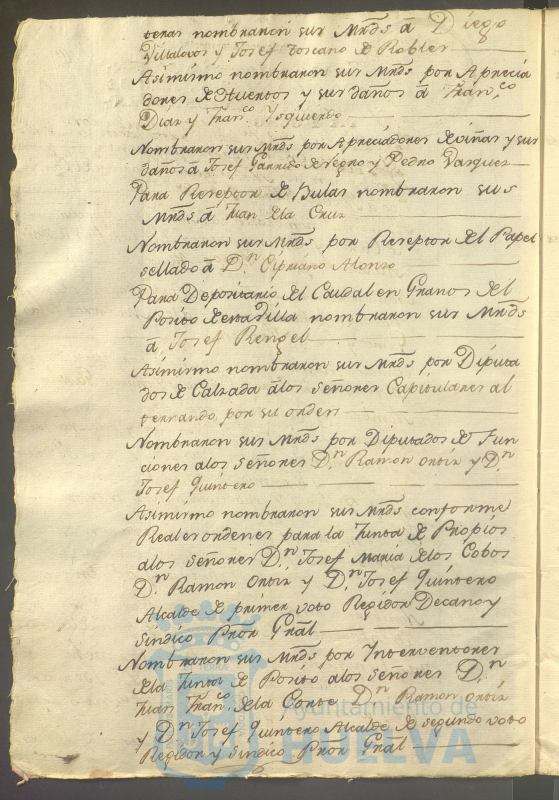 teras nombraron sus Mrds â Diego
Villalovos y Josef Toscano de Robles
Asimismo nombraron sus Mrds por Aprecia
dores de Huertos y sus daños â Fran.co
Diaz y Fran.co Ysquierdo
Nombraron sus Mrds por Apreciadores de viñas y sus
daños â Josef Garrido de Negro y Pedro Vasquez
Para Rezeptor de Bulas nombraron sus
Mrds â Juan de la Cruz
Nombraron sus Mrds por Rezeptor del Papel
sellado â D.n Cipriano Alonso
Para Depositario del Caudal en Granos del
Posito de esta Villa nombraron sus Mrds
â Josef Rengel
Asimismo nombraron sus Mrds por Diputa
dos de Calzada âlos Señores Capitulares al
ternando por su orden
Nombraron sus Mrds por Diputados de Fun
ciones alos Señores D.n Ramon Ortiz y D.n
Josef Quintero
Asimismo nombraron sus Mrds conforme
Reales ordenes para la Junta de Propios
alos Señores D.n Josef Maria delos Cobos
D.n Ramon Ortiz y D.n Josef Quintero
Alcalde de primer voto Regidor Decano y
Sindico Pror Gral
Nombraron sus Mrds por Interventores
dela Junta de Posito alos Señores D.n
Juan Fran.co dela Corte D.n Ramon Ortiz
y D.n Josef Quintero Alcalde de segundo voto
Regidor y Sindico Pror Gral
Ayuntamiento de
HUELVA